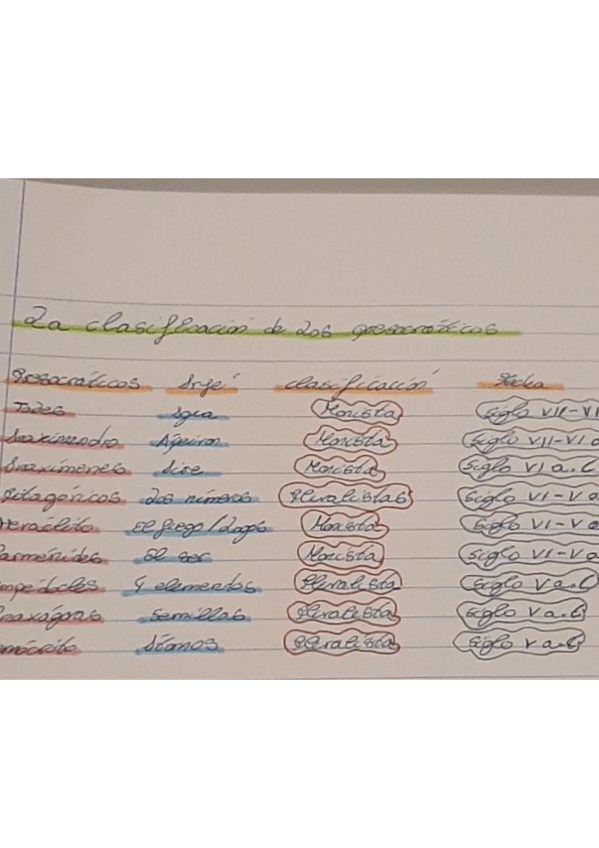 La clasificación de los presocráticos
Presocráticos Arjé clasificación Fecha
Tales Agua Monista Siglo VII-VI
Anaximandro Ápeiron Monista Siglo VII-VI a
Anaxímenes Aire Monista Siglo VI a.C
Pitagóricos Los números Pluralistas Siglo VI-V a
Heráclito El fuego/Logos Monista Siglo VI-V a
Parménides El ser Monista Siglo VI-V a
mpédocles 4 elementos Pluralista Siglo V a.C
naxágoras semillas Pluralista Siglo V a.C
mócrito Átomos Pluralista Siglo V a.C